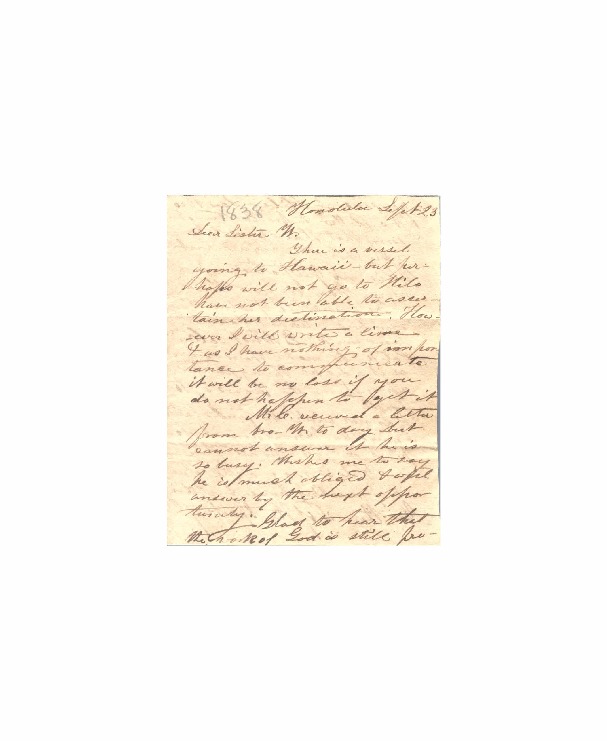 1838 Honolulu Sept 23
Dear Sister W.
There is a vessel
going to Hawaii but per-
haps will not go to Hilo
have not been able to ascer-
tain her destination. How-
ever I will write a line
& as I have nothing of impor
tance to communicate
it will be no loss if you
do not happen to get it
Mr C. received a letter
from bro. W. to day but
cannot answer it he is
so busy. Wishes me to say
he is much obliged & will
answer by the next oppor
tunity. Glad to hear that
the work of God is still pro-